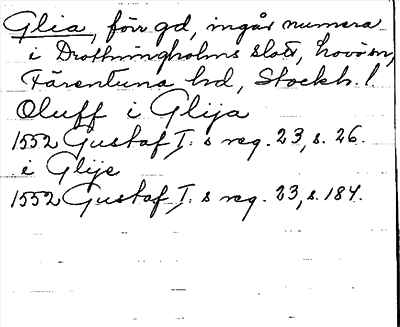 Glia, förr gd, ingår numera
i Drottningholms slott, Lovö sn,
Färentuna hd, Stockh. l
Oluff i Glija
1552 Gustaf I. s reg. 23, s. 26.
i Glije
1552 Gustaf I. s reg. 23, s. 184.